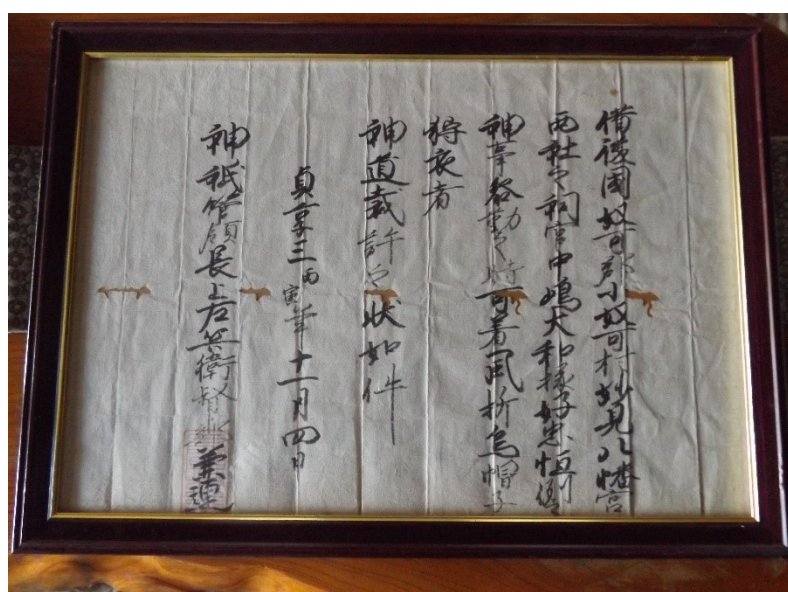 備後國奴可郡小奴可村妙見八幡宮
両社之祠官中嶋大和掾藤忠恒
神事參勤之時可着風折烏帽子
狩衣者
神道裁許之状如件
貞享三丙寅年十一月四日
神祇管領長上左兵衛督兼連